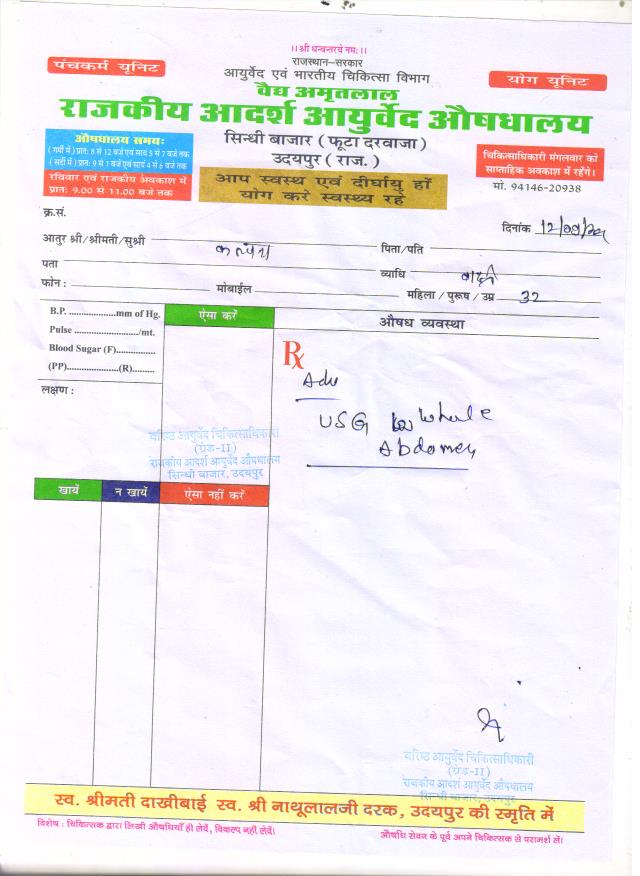 ।। श्री धन्वन्तरये नमः ।।
राजस्थान-सरकार
पंचकर्म यूनिट
आयुर्वेद एवं भारतीय चिकित्सा विभाग
योग यूनिट
वैद्य अमृतलाल
राजकीय आदर्श आयुर्वेद औषधालय
औषधालय समयः
( गर्मी में ) प्रातः 8 से 12 बजे एवं सायं 5 से 7 बजे तक
( सर्दी में ) प्रातः 9 से 1 बजे एवं सायं 4 से 6 बजे तक
रविवार एवं राजकीय अवकाश में
प्रातः 9.00 से 11.00 बजे तक
सिन्धी बाजार ( फूटा दरवाजा )
उदयपुर ( राज. )
आप स्वस्थ एवं दीर्घायु हों
योग करें स्वस्थ्य रहें
चिकित्साधिकारी मंगलवार को
साप्ताहिक अवकाश में रहेंगे।
मो. 94146-20938
क्र.सं.
दिनांक 12/
आतुर श्री/श्रीमती/सुश्री
पिता/पति
पता
व्याधि
फोन :
मोबाईल
महिला / पुरूष / उम्र 32
B.P. ..................mm of Hg.
Pulse ......................../mt.
Blood Sugar (F)................
(PP)....................(R).........
लक्षण :
ऐंसा करें
औषध व्यवस्था
Rx
Adv
USG whole
Abdomen
वरिष्ठ आयुर्वेद चिकित्साधिकारी
(ग्रेड-II)
राजकीय आदर्श आयुर्वेद औषधालय
सिन्धी बाजार, उदयपुर
खायें
न खायें
ऐंसा नहीं करें
वरिष्ठ आयुर्वेद चिकित्साधिकारी
(ग्रेड-II)
राजकीय आदर्श आयुर्वेद औषधालय
सिन्धी बाजार, उदयपुर
स्व. श्रीमती दाखीबाई स्व. श्री नाथूलालजी दरक, उदयपुर की स्मृति में
विशेष : चिकित्सक द्वारा लिखी औषधियाँ ही लेवें, विकल्प नहीं लेवें।
औषधि सेवन के पूर्व अपने चिकित्सक से परामर्श लें।